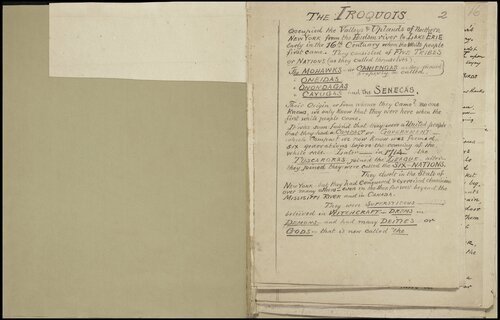 THE IROQUOIS 2
Occupied the Valleys & Uplands of Northern
New York from the Hudson river to LAKE ERIE
Early in the 16th Centuary when the white people
first came. They consisted of FIVE TRIBES
or NATIONS (as they called themselves)
The MOHAWKS or CANIENGAS as they
properly called
ONEIDAS
ONONDAGAS
CAYUGAS and the SENECAS.
Their Origin or from whence they came? no one
Knows, we only know that they were here when the
first white people came.
It was soon found that they were a UNITED people
that they had a COMPACT or GOVERNMENT
which Compact we now know was formed
six generations before the coming of the
white race. Later in 1714 the
TUSCARORAS joined the LEAGUE, after
they joined they were called the SIX-NATIONS.
They dwelt in the State of
NEW YORK. but they had Conquered & exercised
over many even in the beyond the
MISSISIPPI RIVER and in CANADA.
They were SUPERSTICIOUS
believed in WITCHCRAFT
DEMONS and had many DEITIES or
GODS that is now called the